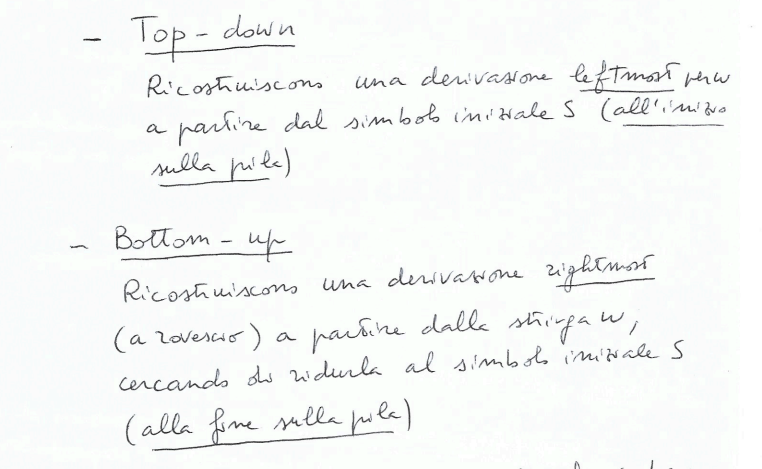 - Top-down
Ricostruiscono una derivazione leftmost per w
a partire dal simbolo iniziale S (all'inizio
sulla pila)
- Bottom-up
Ricostruiscono una derivazione rightmost
(a rovescio) a partire dalla stringa w,
cercando di ridurla al simbolo iniziale S
(alla fine sulla pila)